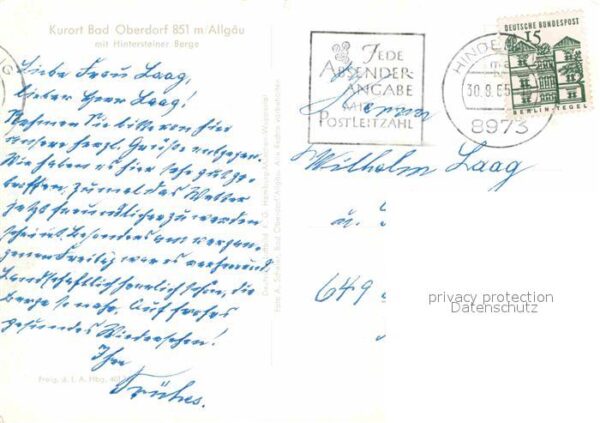 Kurort Bad Oberdorf 851 m Allgäu
mit Hintersteiner Berge
Liebe Frau Laag,
lieber Herr Laag!
Nehmen Sie bitte von hier
unsere herzl. Grüße entgegen.
Wir haben es hier sehr gut ge-
troffen, zumal das Wetter
jetzt freundlicher zu werden
scheint. Besonders am vergan-
genen Freitag war es
Landschaftlich herrlich schön, die
Berge so nah. Auf frohes
gesundes Wiedersehen!
Ihre
Freig. d. L. A. Hbg.
JEDE
ABSENDER-
ANGABE
MIT
POSTLEITZAHL
30.8.65
8973
DEUTSCHE BUNDESPOST
15
BERLIN-TEGEL
Wilhelm Laag
u.
649
privacy protection
Datenschutz